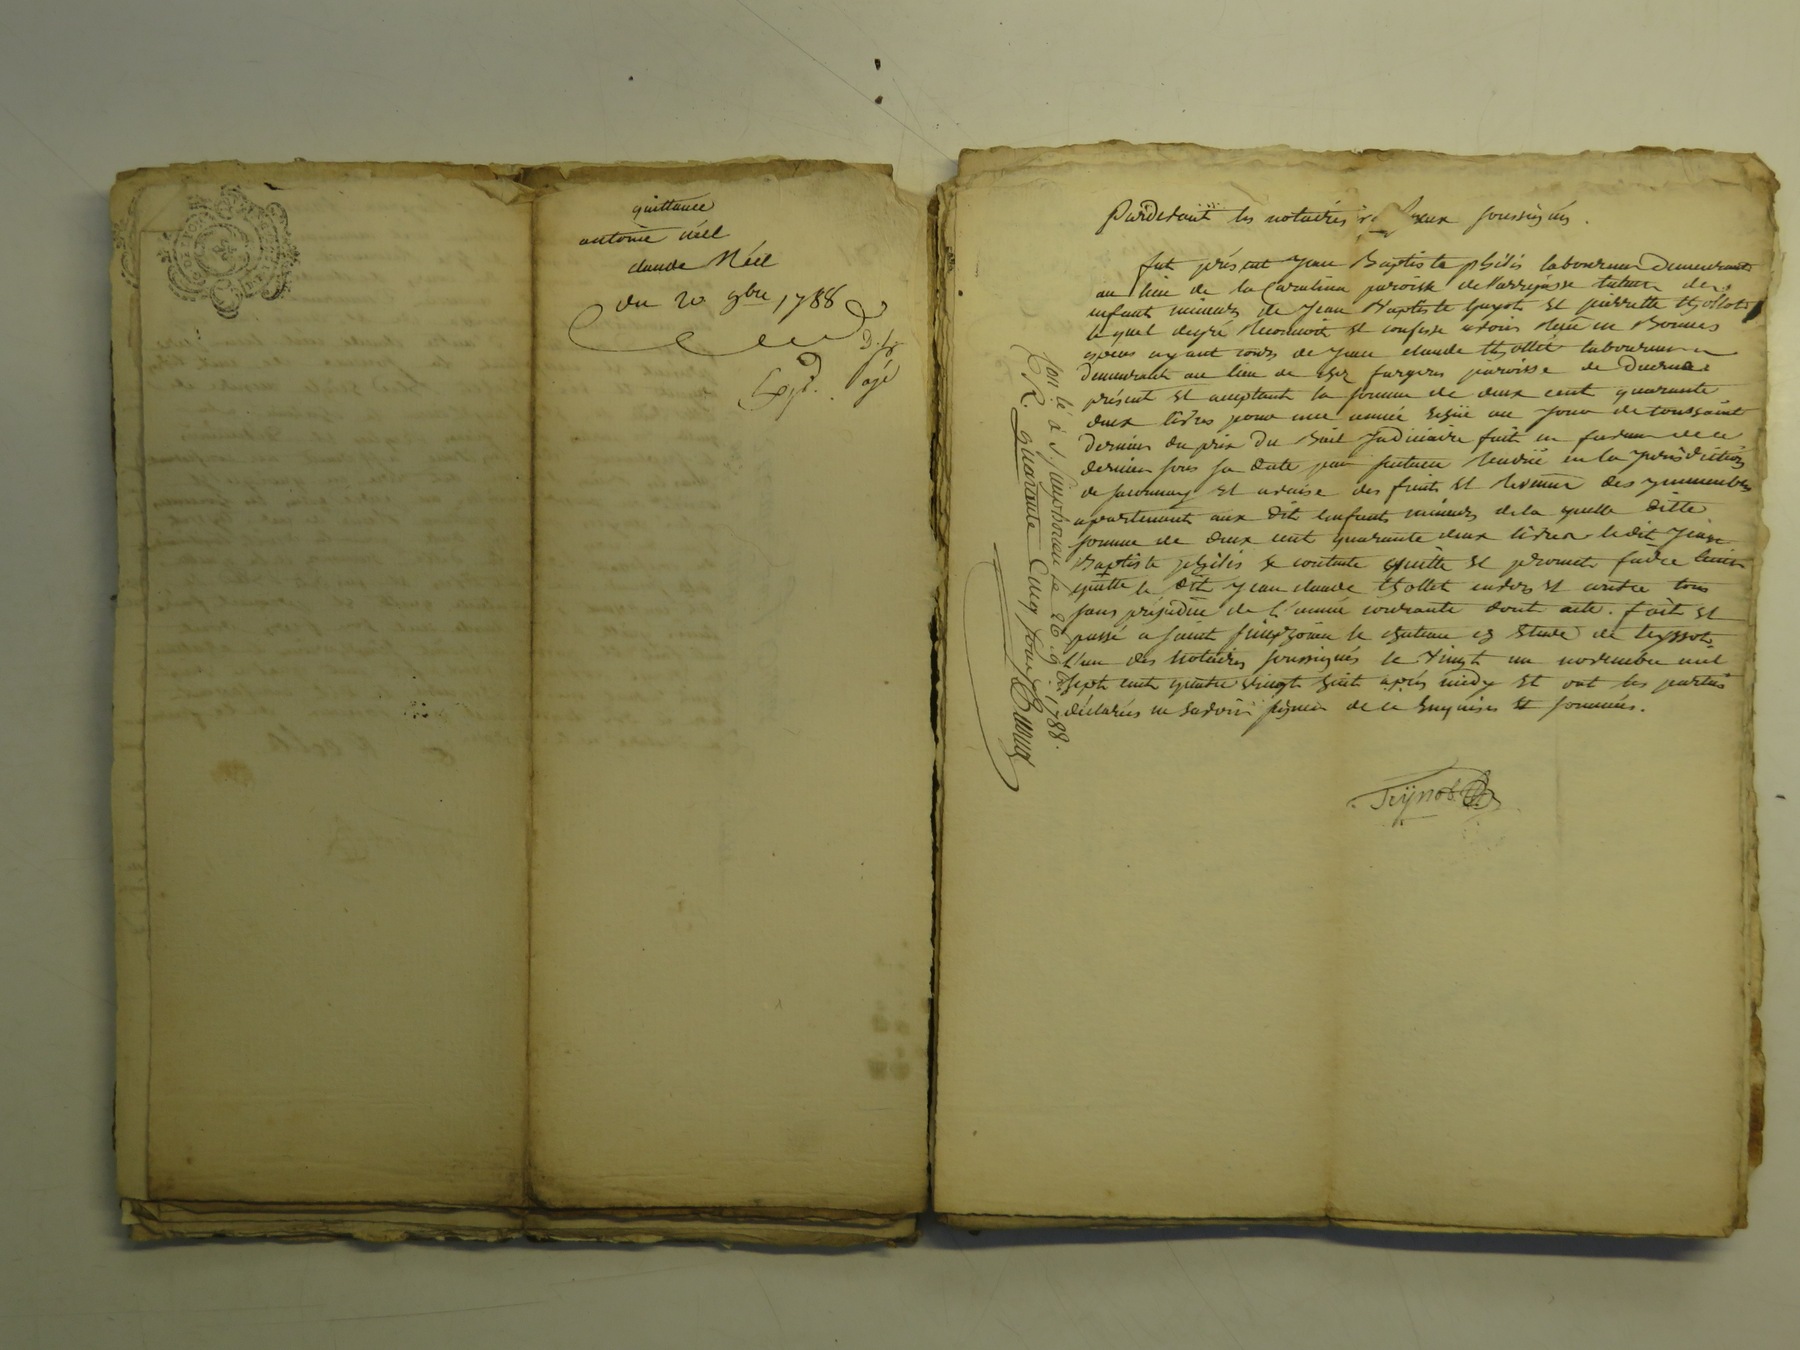 quittance
antoine néel
claude Néel
du 20 9bre 1788
Expd.
Pardevant les notaires royaux soussignés.
fut présent Jean Baptiste philis laboureur demeurant
au lieu de la paroisse de tuteur des
enfants mineurs de Jean Baptiste guyot et pierrette thollot
lequel de gré reconnoit et confesse avoir reçu en bonnes
espèces ayant cours de Jean claude thollet laboureur
demeurant au lieu de chez paroisse de
présent et acceptant la somme de deux cent quarante
deux livres pour une année échüe au jour de toussaint
dernier du prix du Bail Judiciaire fait en faveur de ce
dernier sous sa date par sentence rendüe en la Jurisdiction
de et des fruits et revenus des ymmeubles
apartenants aux dits enfants mineurs de la quelle ditte
somme de deux cent quarante deux livres ledit Jean
Baptiste philis se contente quitte et promet faire tenir
quitte le dit Jean claude thollet envers et contre tous
sans préjudice de l'année courante dont acte. fait et
passé a saint le chateau ez Etude de
l'un des Notaires soussignés le vingt un novembre mil
sept cent quatre vingt huit après midy et ont les parties
déclarées ne savoir signer de ce Enquises et sommées.
Con.lé à S. Simphorien le 26 9b. 1788.
R. quarante cinq sous